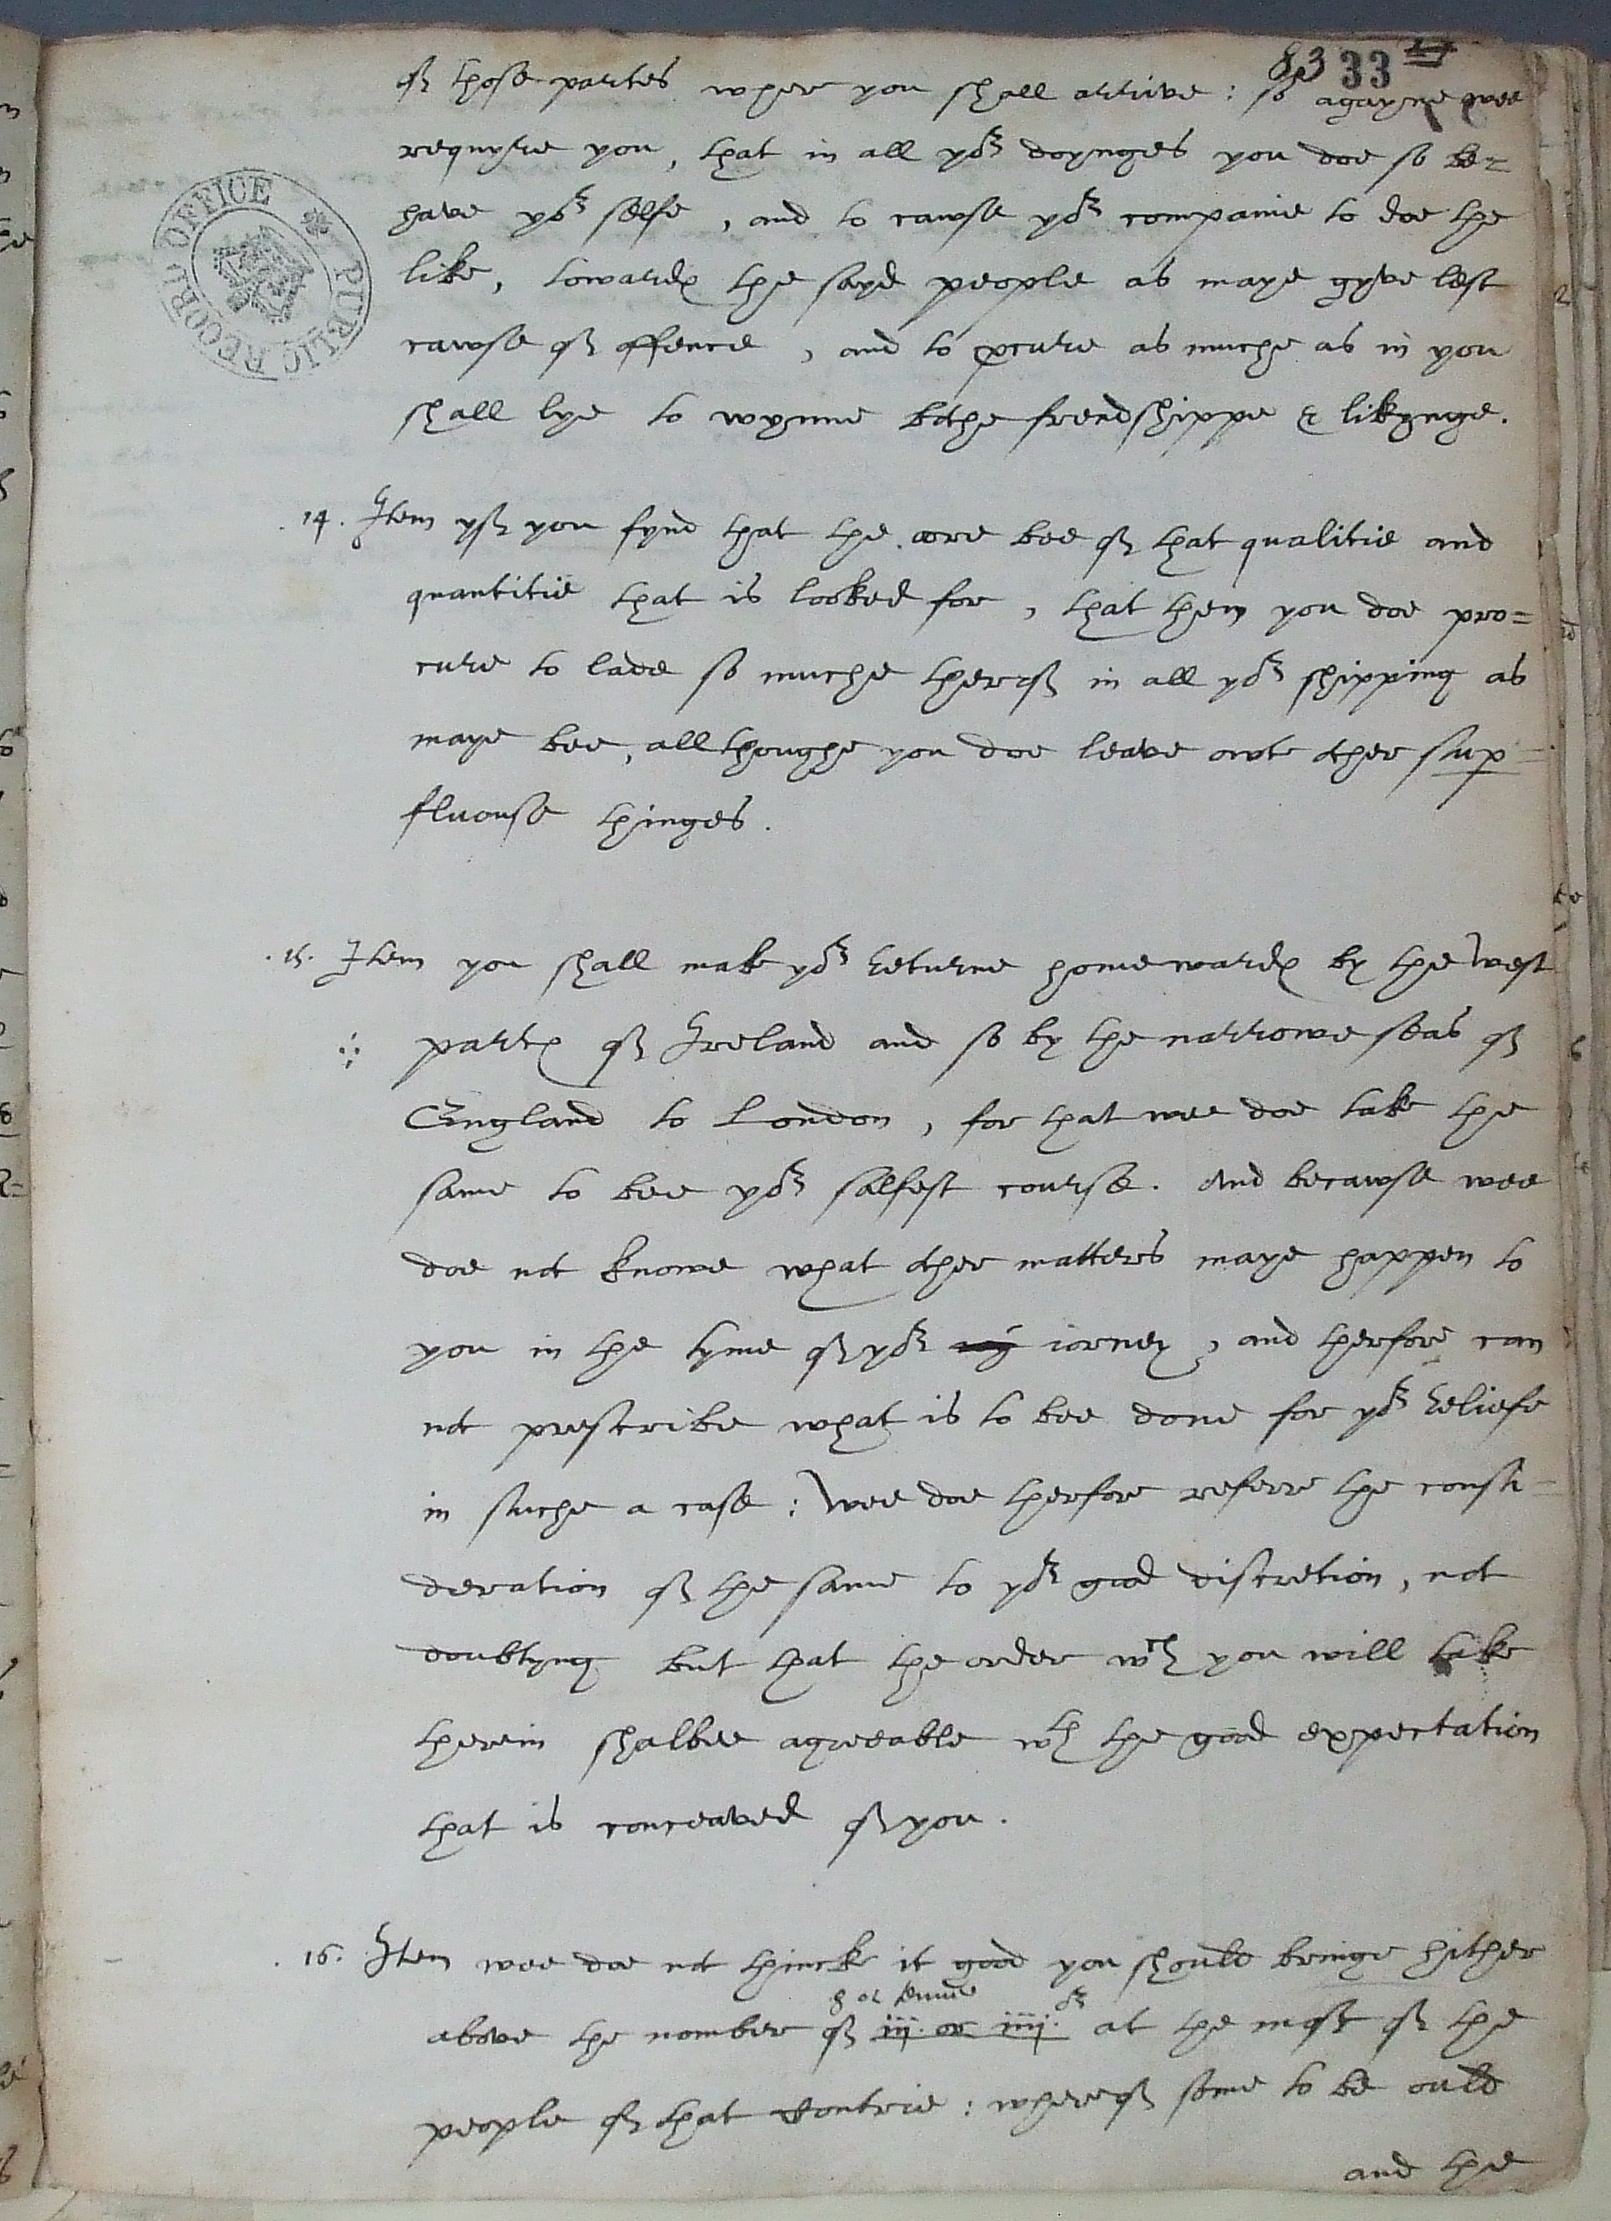 83 33 
of those partes wher you shall arrive : so agayne wee
requyre you, that in all yor doynges you doe so be-
have yor selfe, and to cawse yor companie to doe the
like, towardes the sayd people as maye gyve lest
cawse of offence, and to pcure as muche as in you
shall lye to wynne bothe frendshippe & likynge.
PUBLIC RECORD OFFICE
.14. Item yf you fynd that the oore bee of that qualitie and
quantitie that is looked for, that then you doe pro=
cure to lade so muche therof in all yor shipping as
maye bee, allthoughe you doe leave owt other sup=
fluouse thinges.
.15. Item you shall make yor returne homewardes by the west
partes of Ireland and so by the narrowe seas of
England to London, for that wee doe take the
same to bee yor salfest course. And becawse wee
doe not knowe what other matters maye happen to
you in the tyme of yor iorney, and therfore can
not prescribe what is to bee done for yor reliefe
in suche a case : Wee doe therfore referre the consi=
deration of the same to yor good discretion, not
doubtyng but that the order wch you will take
therein shalbee agreeable wth the good expectation
that is conceaved of you.
.16. Item wee doe not thincke it good you should bringe hither
8 or tenne
above the nomber of iij. or iiij.or at the most of the
people of that Contrie : whereof some to be ould
and the